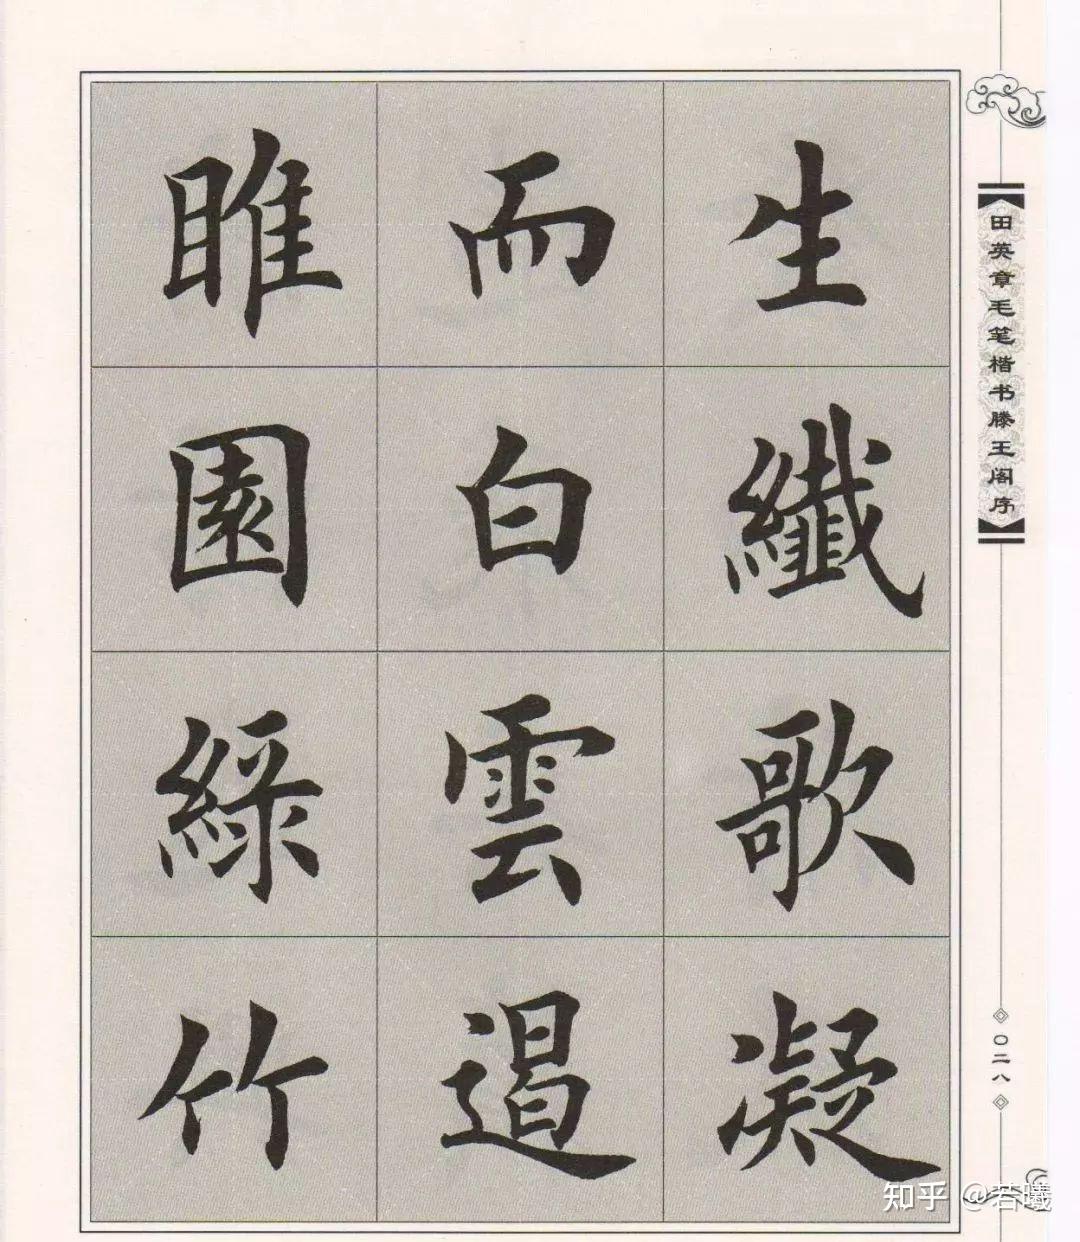 生纖歌凝
而白雲遏
睢園綠竹
田英章毛笔楷书滕王阁序
〇二八
知乎 @若曦